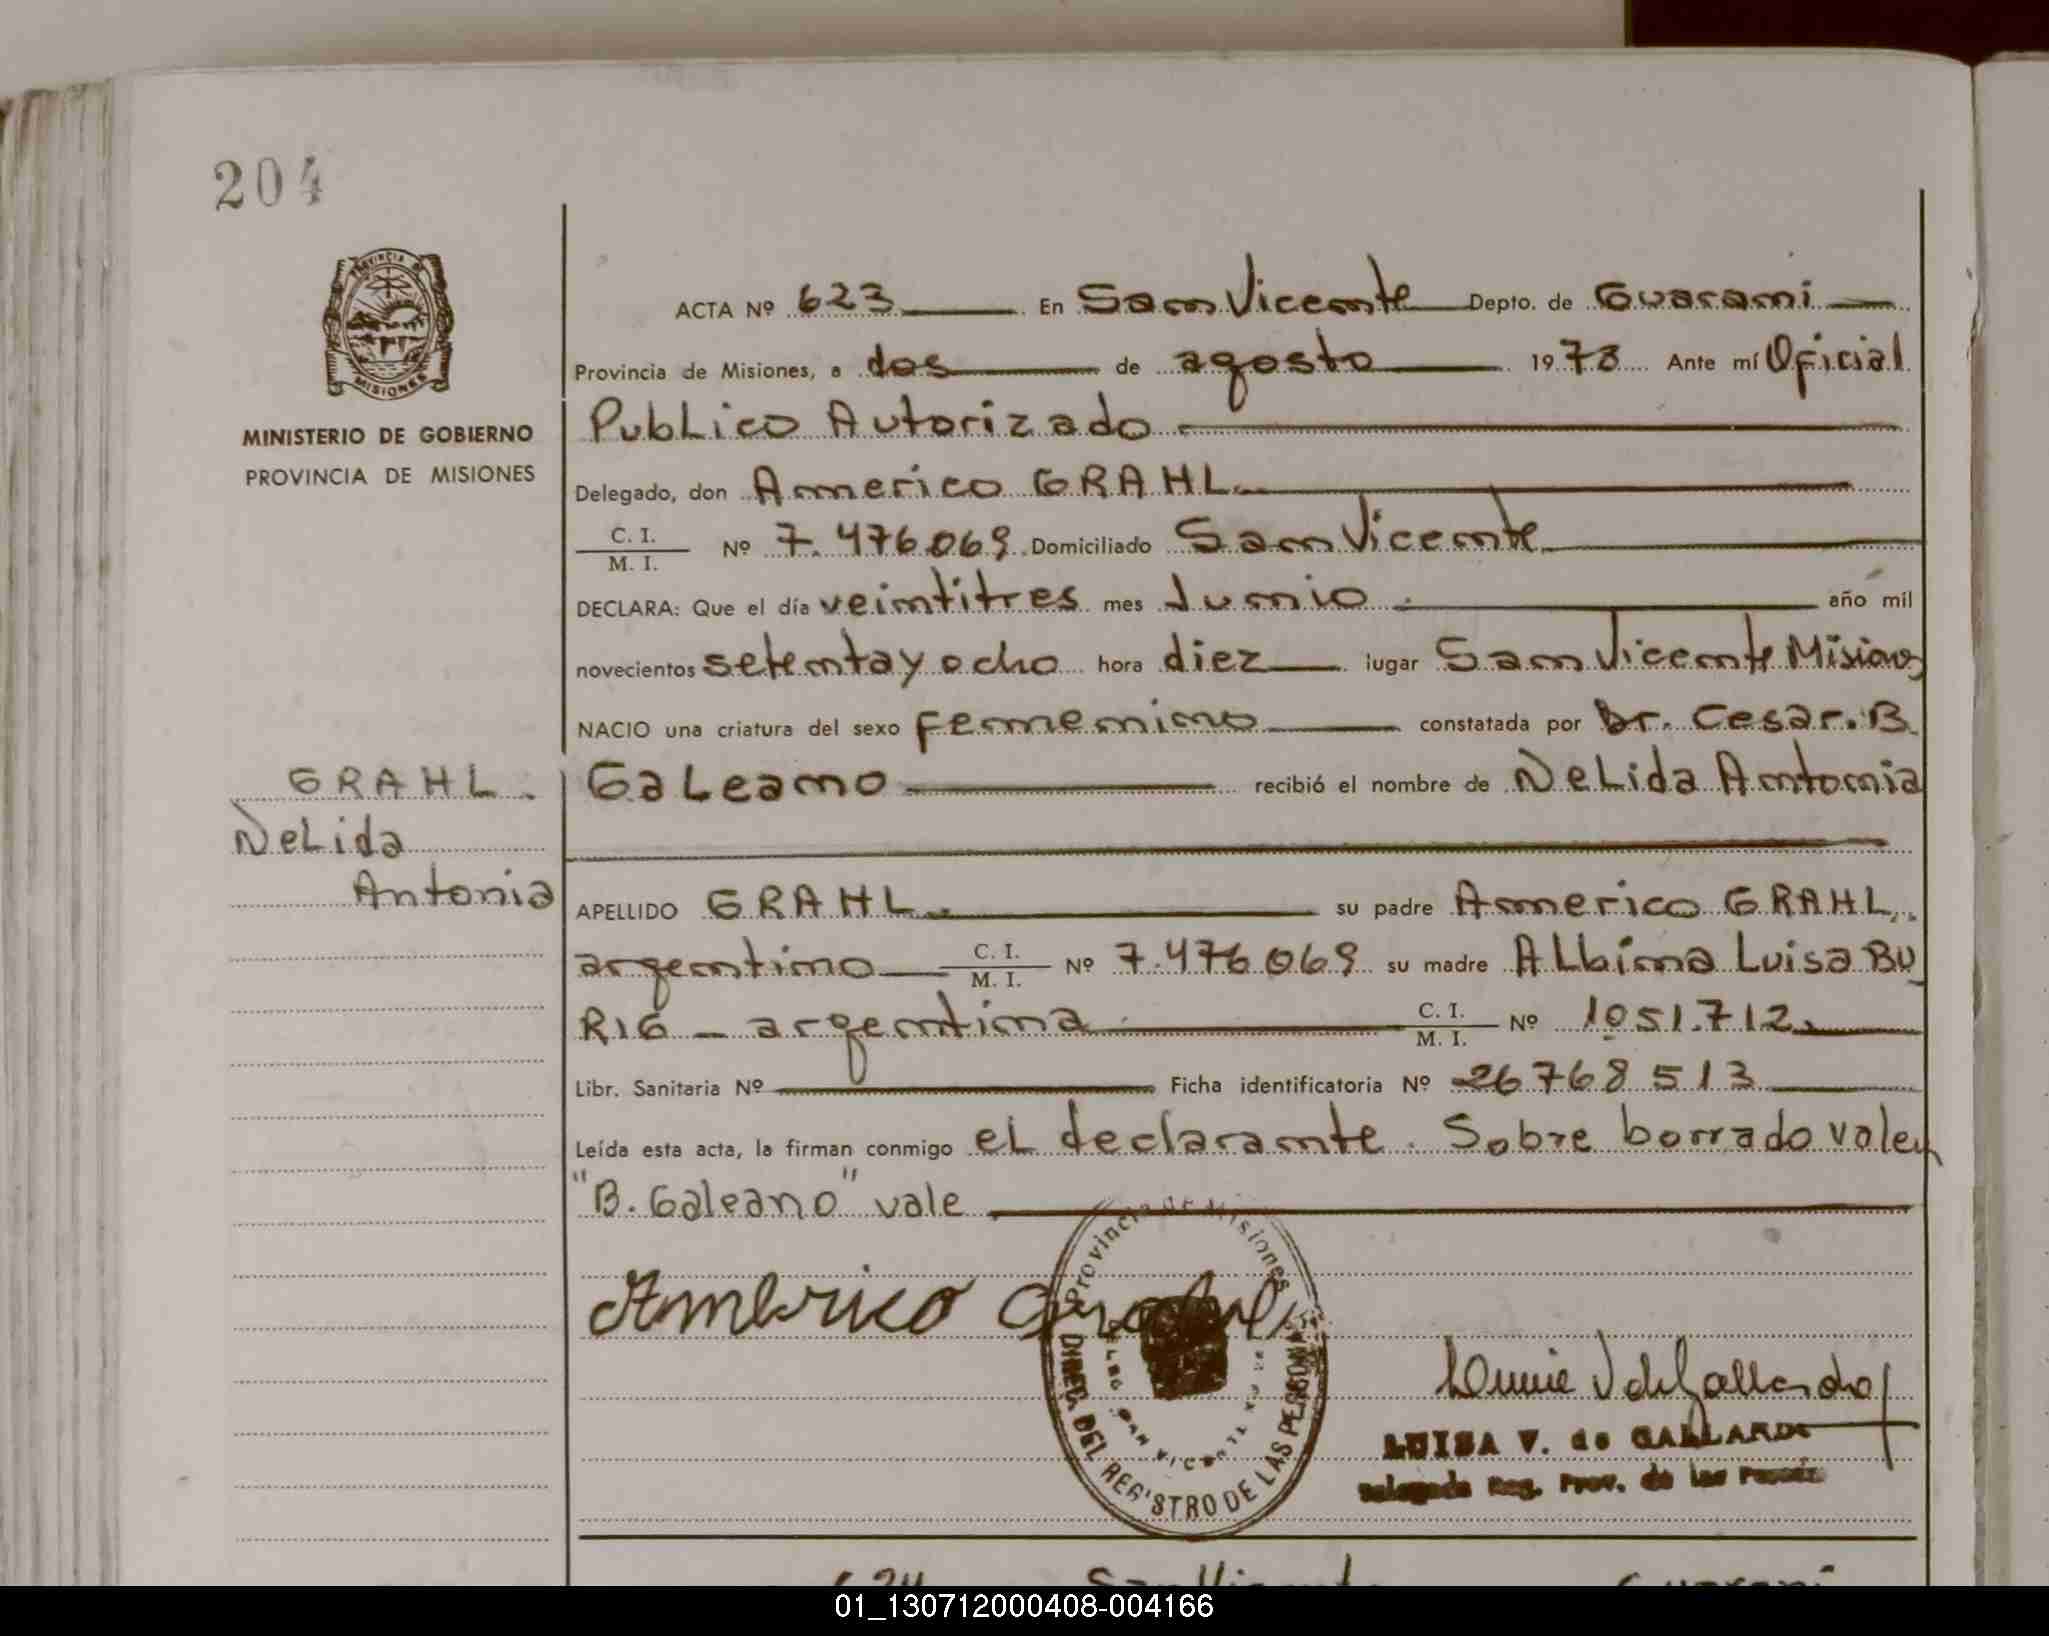 204
PROVINCIA DE
MISIONES
MINISTERIO DE GOBIERNO
PROVINCIA DE MISIONES
ACTA Nº 623 En San Vicente Depto. de Guarani
Provincia de Misiones, a dos de agosto 1978 Ante mí Oficial
Publico Autorizado
Delegado, don Americo GRAHL.
C. I.
M. I. Nº 7.476.069 Domiciliado San Vicente
DECLARA: Que el día veintitres mes Junio año mil
novecientos setenta y ocho hora diez lugar San Vicente Misiones
NACIO una criatura del sexo femenino constatada por Dr. Cesar. B.
GRAHL. Galeano recibió el nombre de Nelida Antonia
Nelida
Antonia
APELLIDO GRAHL. su padre Americo GRAHL.
argentino C. I.
M. I. Nº 7.476.069 su madre Albina Luisa BU
RIG - argentina C. I.
M. I. Nº 1051.712.
Libr. Sanitaria Nº Ficha identificatoria Nº 26768513
Leída esta acta, la firman conmigo el declarante. Sobre borrado vale
"B. Galeano" vale
Provincia de Misiones
DIREC. DEL REGISTRO DE LAS PERSONAS
SAN VICENTE
Americo Grahl
LUISA V. de GALLARDO
Delegada Reg. Prov. de las Person
624 San Vicente Guarani
01_130712000408-004166